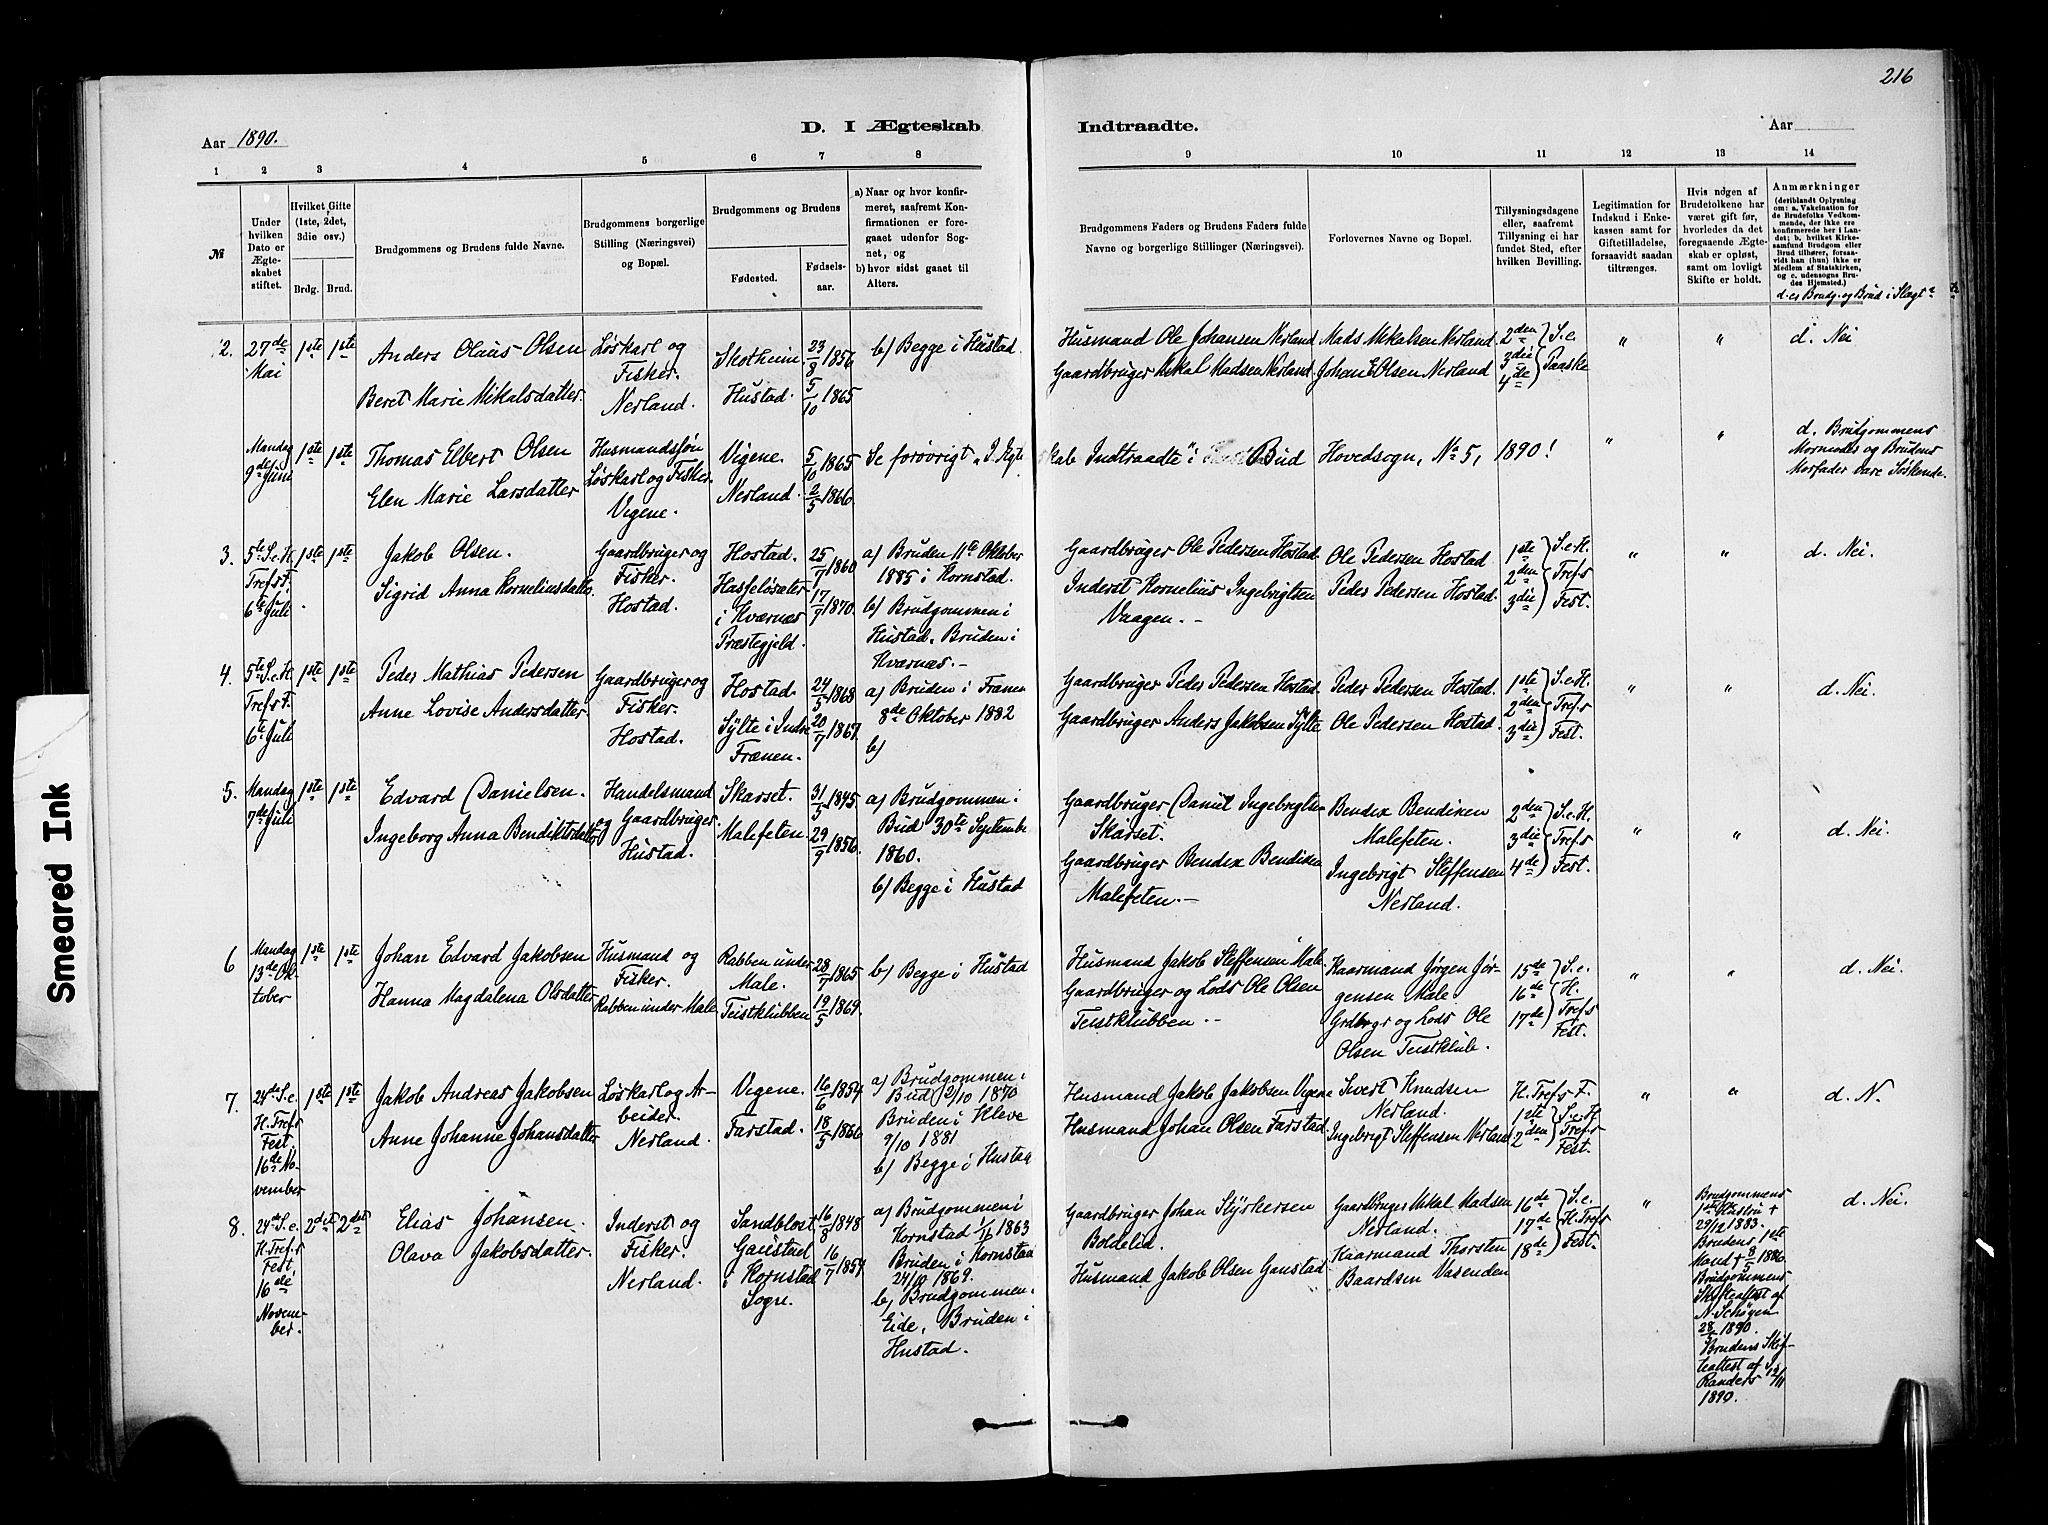 216
Aar 1890.
D. I Ægteskab
Indtraadte.
Aar
1 2 3 4 5 6 7 8
9 10 11 12 13 14
№
Under hvilken Dato er Ægteskabet stiftet.
Hvilket Gifte (1ste, 2det, 3die osv.)
Brdg. Brud.
Brudgommens og Brudens fulde Navne.
Brudgommens borgerlige Stilling (Næringsvei) og Bopæl.
Brudgommens og Brudens
Fødested.
Fødselsaar.
a) Naar og hvor konfirmeret, saafremt Konfirmationen er foregaaet udenfor Sognet, og
b) hvor sidst gaaet til Alters.
Brudgommens Faders og Brudens Faders fulde Navne og borgerlige Stillinger (Næringsvei).
Forlovernes Navne og Bopæl.
Tillysningsdagene eller, saafremt Tillysning ei har fundet Sted, efter hvilken Bevilling.
Legitimation for Indskud i Enkekassen samt for Giftetilladelse, forsaavidt saadan tiltrænges.
Hvis nogen af Brudefolkene har været gift før, hvorledes da det foregaaende Ægteskab er opløst, samt om lovligt Skifte er holdt.
Anmærkninger (deriblandt Oplysning om: a. Vakcination for de Brudefolks Vedkommende, der ikke ere konfirmerede her i Landet; b. hvilket Kirkesamfund Brudgom eller Brud tilhører, forsaavidt han (hun) ikke er Medlem af Statskirken, og c. udensogns Brudes Hjemsted.)
d. er Brudg. og Brud i Slægt
2. 27de Mai 1ste 1ste
Anders Olaus Olsen
Beret Marie Mikalsdatter
Løskarl og Fisker. Nerland.
Skotheim 23/8 1856
Hustad. 5/10 1865
b) Begge i Hustad
Husmand Ole Johansen Nerland
Gaardbruger Mikal Madsen Nerland
Mads Mikalsen Nerland
Johan E Olsen Nerland
2den 3die 4de S. e. Paaske
" " d. Nei
Mandag 9de Juni 1ste 1ste
Thomas Elbert Olsen
Elen Marie Larsdatter
Husmandssøn Løskarl og Fisker. Vigene.
Vigene. 5/6 1865
Nerland. 2/5 1866
Se forøvrigt „I Ægteskab Indtraadte" i Bud Hovedsogn, No 5, 1890!
" " d. Brudgommens Mormoder og Brudens Morfader vare Søskende
3. 5te S. e. H. Tref. s F. 6te Juli 1ste 1ste
Jakob Olsen.
Sigrid Anna Korneliusdatter
Gaardbruger og Fisker. Hostad.
Hostad. 25/7 1860
Hasfeløsæter i Kværnæs Præstegjeld. 17/7 1870
a) Bruden 11te Oktober 1885 i Kornstad.
b) Brudgommen i Hustad. Bruden i Kværnæs.
Gaardbruger Ole Pedersen Hostad
Inderst Kornelius Ingebrigtsen Vaagen.
Ole Pedersen Hostad
Peder Pedersen Hostad.
1ste 2den 3die S. e. H. Tref. s Fest.
" " d. Nei.
4. 5te S. e. H. Tref. s F. 6te Juli 1ste 1ste
Peder Mathias Pedersen
Anne Lovise Andersdatter
Gaardbruger og Fisker. Hostad.
Hostad. 24/5 1868
Sylte i Indre Frænen. 20/7 1867
a) Bruden i Frænen 8de Oktober 1882
b)
Gaardbruger Peder Pedersen Hostad
Gaardbruger Anders Jakobsen Sylte
Peder Pedersen Hostad.
Ole Pedersen Hostad.
1ste 2den 3die S. e. H. Tref. s Fest.
" " d. Nei.
5. Mandag 7de Juli 1ste 1ste
Edvard Danielsen.
Ingeborg Anna Bendiktsdatter
Handelsmand og Gaardbruger. Hustad.
Skarset. 31/5 1845
Malefeten. 29/9 1856.
a) Brudgommen i Bud 30te Septembe 1860.
b) Begge i Hustad
Gaardbruger Daniel Ingebrigtsen Skarset.
Gaardbruger Bendix Bendixen Malefeten.
Bendix Bendixen Malefeten.
Ingebrigt Steffensen Nerland.
2den 3die 4de S. e. H. Tref. s Fest.
" " d. Nei.
6 Mandag 13de Oktober 1ste 1ste
Johan Edvard Jakobsen
Hanna Magdalena Olsdatter
Husmand og Fisker. Rabben under Male
Rabben under Male. 28/7 1865
Teistklubben 19/5 1869.
b) Begge i Hustad
Husmand Jakob Steffensen Male
Gaardbruger og Lods Ole Olsen Teistklubben
Kaarmand Jørgen Jørgensen Male
Grdbrgr og Lods Ole Olsen Teistklub.
15de 16de 17de S. e. H. Tref. s Fest.
" " d. Nei.
7. 24de S. e. H. Tref. s Fest. 16de November 1ste 1ste
Jakob Andreas Jakobsen
Anne Johanne Johansdatter
Løskarl og Arbeider. Nerland.
Vigene. 16/6 1854
Farstad. 18/5 1866
a) Brudgommen i Bud 2/10 1870
Bruden i Kleve 9/10 1881
b) Begge i Hustad
Husmand Jakob Jakobsen Vigene
Husmand Johan Olsen Farstad
Sivert Knudsen Nerland.
Ingebrigt Steffensen Nerland
H. Tref. s F. 1ste 2den S. e. H. Tref. s Fest.
" " d. N.
8. 24de S. e. H. Tref. s Fest, 16de November. 2det 2det
Elias Johansen.
Olava Jakobsdatter.
Inderst og Fisker. Nerland.
Sandblost 16/8 1848
Gaustad i Kornstad Sogn. 16/7 1854
a) Brudgommen i Kornstad 1/6 1863
Bruden i Kornstad 24/10 1869.
b) Brudgommen i Eide, Bruden i Hustad.
Gaardbruger Johan Styrkersen Boldelid.
Husmand Jakob Olsen Gaustad
Gaardbruger Mikal Madsen Nerland.
Kaarmand Thorsten Baardsen Vasenden
16de 17de 18de S. e. H. Tref. s Fest.
" Brudgommens 1ste Hustru † 29/12 1883. Brudens 1ste Mand † 8/5 1886. Brudgommens Skifteattest af N. Schøyen 28/5 1890. Brudens Skifteattest af S. Randers 12/11 1890.
d. Nei.
Smeared Ink